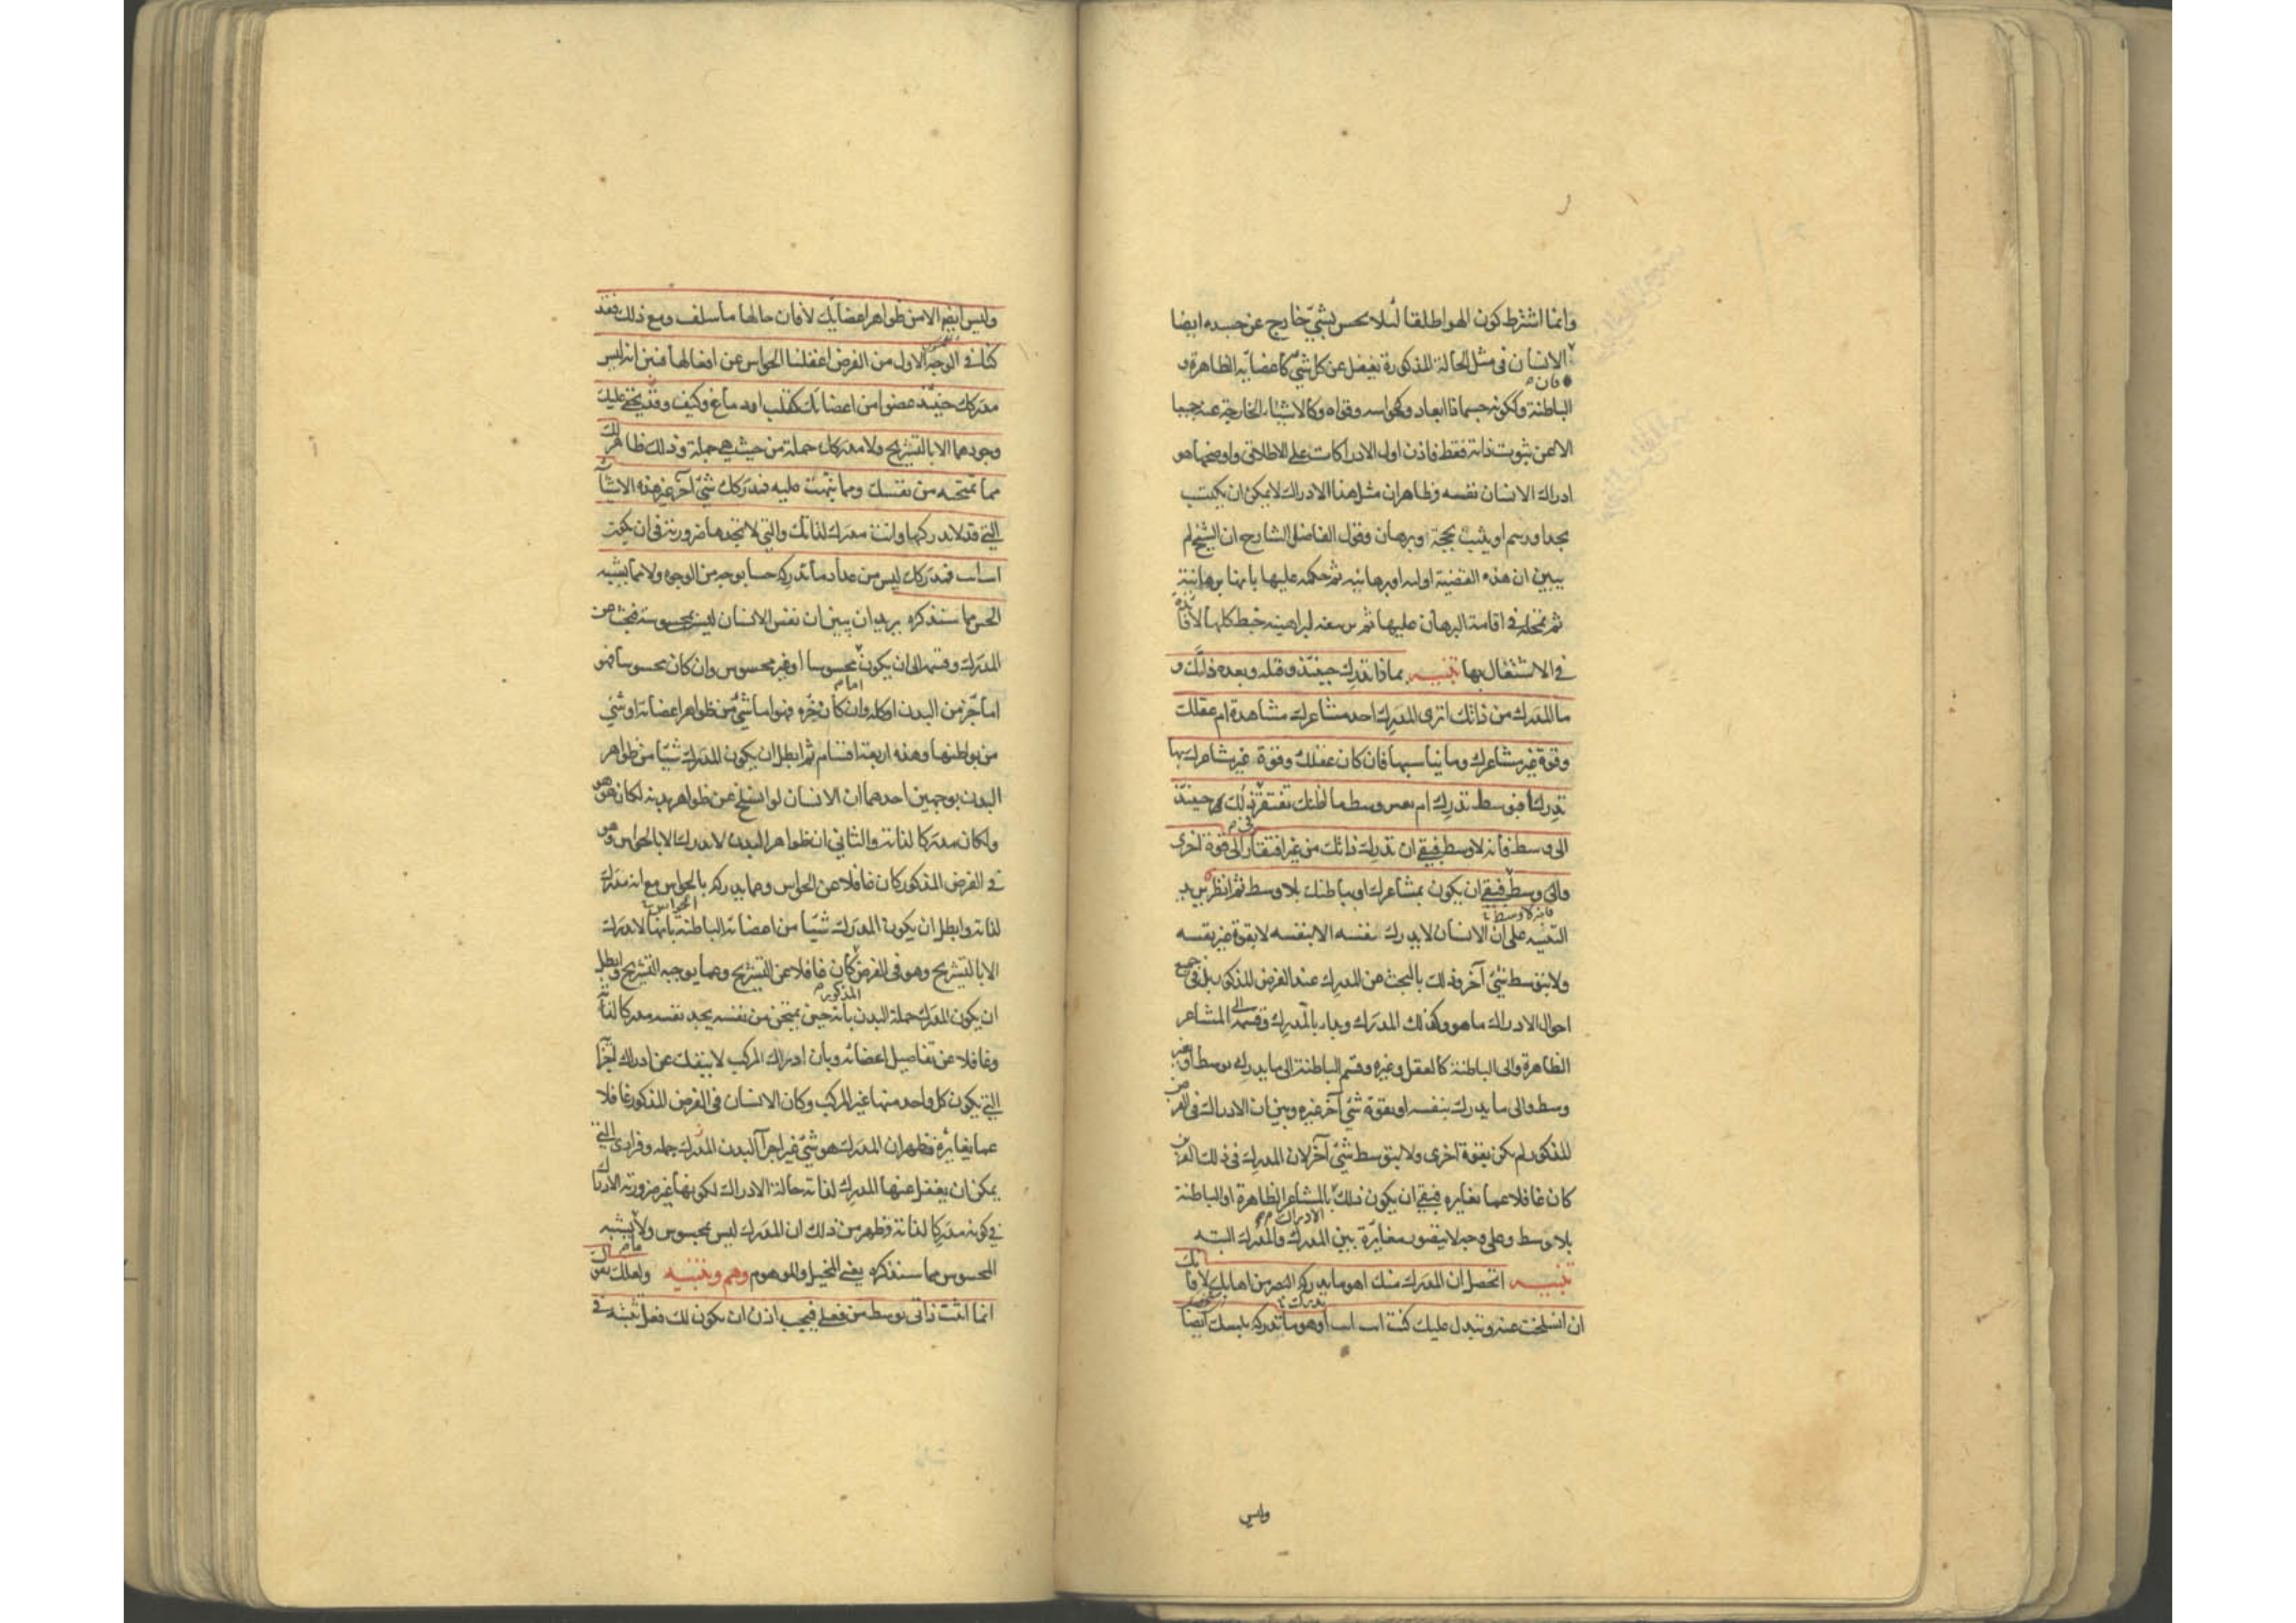 وانما اشترط كون الهواطلقا لئلا يحس بشئ خارج عن جسده ايضا
الانسان فى مثل الحالة المذكورة يغفل عن كل شئ كاعضائه الظاهرة و
فان
الباطنة وككونه جسما ذا ابعاد وكحواسه وقواه وكالاشياء الخارجة عنه جميعا
الا عن ثبوت ذاته فقط فاذن اول الادراكات على الاطلاق واوضحها هو
ادراك الانسان نفسه وظاهر ان مثل هذا الادراك لا يمكن ان يكتسب
بحد او رسم او يثبت بحجة او برهان وقول الفاضل الشارح ان الشيخ لم
يبين ان هذه القضية اوليه او برهانيه ثم حكمه عليها بانها برهانية
ثم تمحله فى اقامة البرهان عليها ثم خبط كلها لا فائدة
فى الاشتغال بها تنبيه بماذا تدرك حينئذ وقبله وبعده ذاتك و
ما المدرك من ذاتك اترى المدرك احد مشاعرك مشاهدة ام عقلك
وقوة غير مشاعرك وما يناسبها فان كان عقلك وقوة غير مشاعرك بها
تدرك افبوسط تدرك ام بغير وسط ما اظنك تفتقر فى ذلك حينئذ
الى وسط فانه لا وسط فبقى ان تدرك ذاتك من غير افتقار الى قوة اخرى
والى وسط فبقى ان يكون بمشاعرك او بباطنك بلا وسط ثم انظر يريد
فانه لا وسط
التنبيه على ان الانسان لا يدرك نفسه الا بنفسه لا بقوة غير نفسه
ولا بتوسط شئ آخر وذلك بالبحث عن المدرك عند الفرض المذكور بل فى جميع
احوال الادراك ما هو وكذلك المدرك وبدا بالمدرك وقسمه الى المشاعر
الظاهرة والى الباطنة كالعقل وغيره وقسم الباطنة الى ما يدرك بوسط او غير
وسط والى ما يدرك بنفسه او بقوة شئ آخر غيره وبين ان الادراك فى الفرض
المذكور لم يكن بقوة اخرى ولا بتوسط شئ آخر لان المدرك فى ذلك الفرض
كان غافلا عما يغايره فبقى ان يكون ذلك بالمشاعر الظاهرة او الباطنة
الادراك
بلا وسط وعلى وجه لا يتصور مغايرة بين المدرك والمدرك البته
تنبيه اتحصل ان المدرك منك اهو ما يدركه البصر من اهابك لا فانك
ان انسلخت عنه وتبدل عليك كنت انت انت اوهو ما تدركه بلمسك ايضا
وليس
وليس ايضا الا من ظواهر اعضائك لا فان حالها ما سلف ومع ذلك فقد
كنا فى الوجه الاول من الفرض اغفلنا الحواس عن افعالها فبين انه ليس
مدركك حينئذ عضوا من اعضائك كقلب او دماغ وكيف وقد يخفى عليك
وجودهما الا بالتشريح ولا مدركك جملة من حيث هى جملة وذلك ظاهر لك
مما تمتحنه من نفسك ومما نبهت عليه فمدركك شئ آخر غير هذه الاشياء
التى قد لا تدركها وانت مدرك لذاتك والتى لا تجدها ضرورية فى ان يكون
انت انت فمدركك ليس من عداد ما تدركه حسا بوجه من الوجوه ولا مما يشبه
الحس مما سنذكره يريد ان يبين ان نفس الانسان ليس بمحسوسة فبحث عن
المدرك وقسمه الى ان يكون محسوسا او غير محسوس وان كان محسوسا فهو
اما جزء من البدن او كله وان كان جزءه فهو اما شئ من ظواهر اعضائه او شئ
من بواطنها وهذه اربعة اقسام ثم ابطل ان يكون المدرك شيئا من ظواهر
البدن بوجهين احدهما ان الانسان لو انسلخ عن ظواهر بدنه لكان هو هو
ولكان مدركا لذاته والثانى ان ظواهر البدن لا تدرك الا بالحواس وهو
فى الفرض المذكور كان غافلا عن الحواس وعما يدركه بالحواس مع انه مدرك
لذاته وابطل ان يكون المدرك شيئا من اعضائه الباطنة بانها لا تدرك
الا بالتشريح وهو فى الفرض كان غافلا عن التشريح وعما يوجبه التشريح وابطل
المذكور
ان يكون المدرك جملة البدن بانه حين يمتحن من نفسه يجد نفسه مدركا لذاته
وغافلا عن تفاصيل اعضائه وبان ادراك المركب لا ينفك عن ادراك اجزائه
التى يكون كل واحد منها غير المركب وكان الانسان فى الفرض المذكور غافلا
عما يغايره فظهر ان المدرك هو شئ غير اجزآ البدن المدرك جمله وفرادى التى
يمكن ان يغفل عنها المدرك لذاته حالة الادراك لكونها غير ضرورية الادراك
فى كونه مدركا لذاته وظهر من ذلك ان المدرك ليس بمحسوس ولا يشبه
المحسوس مما سنذكره يعنى المخيل والموهوم وهم وتنبيه ولعلك تقول
انما اثبت ذاتى بوسط من فعلى فيجب اذن ان يكون لك فعل تثبته فى